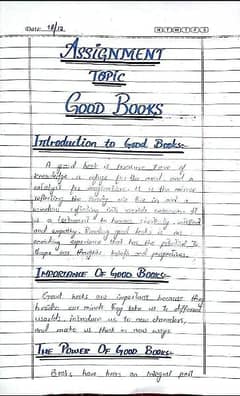 Date: 18/12
M T W T F S S
ASSIGNMENT
TOPIC
GOOD BOOKS
Introduction to Good Books:-
A good book is treasure trove of
knowledge, a refuge for the soul and a
catalyst for imagination. It is the mirror
reflecting the society we live in and a
window
is a testament to human creativity,
and empathy. Reading good books is an
enriching experience that has the potential to
shape our thoughts, beliefs and perspectives.
IMPORTANCE OF GOOD BOOKS:-
Good books are important because they
our minds. They take us to different
worlds, introduce us to new characters,
and make us think in new ways.
THE POWER OF GOOD BOOKS:-
Books have been an integral part